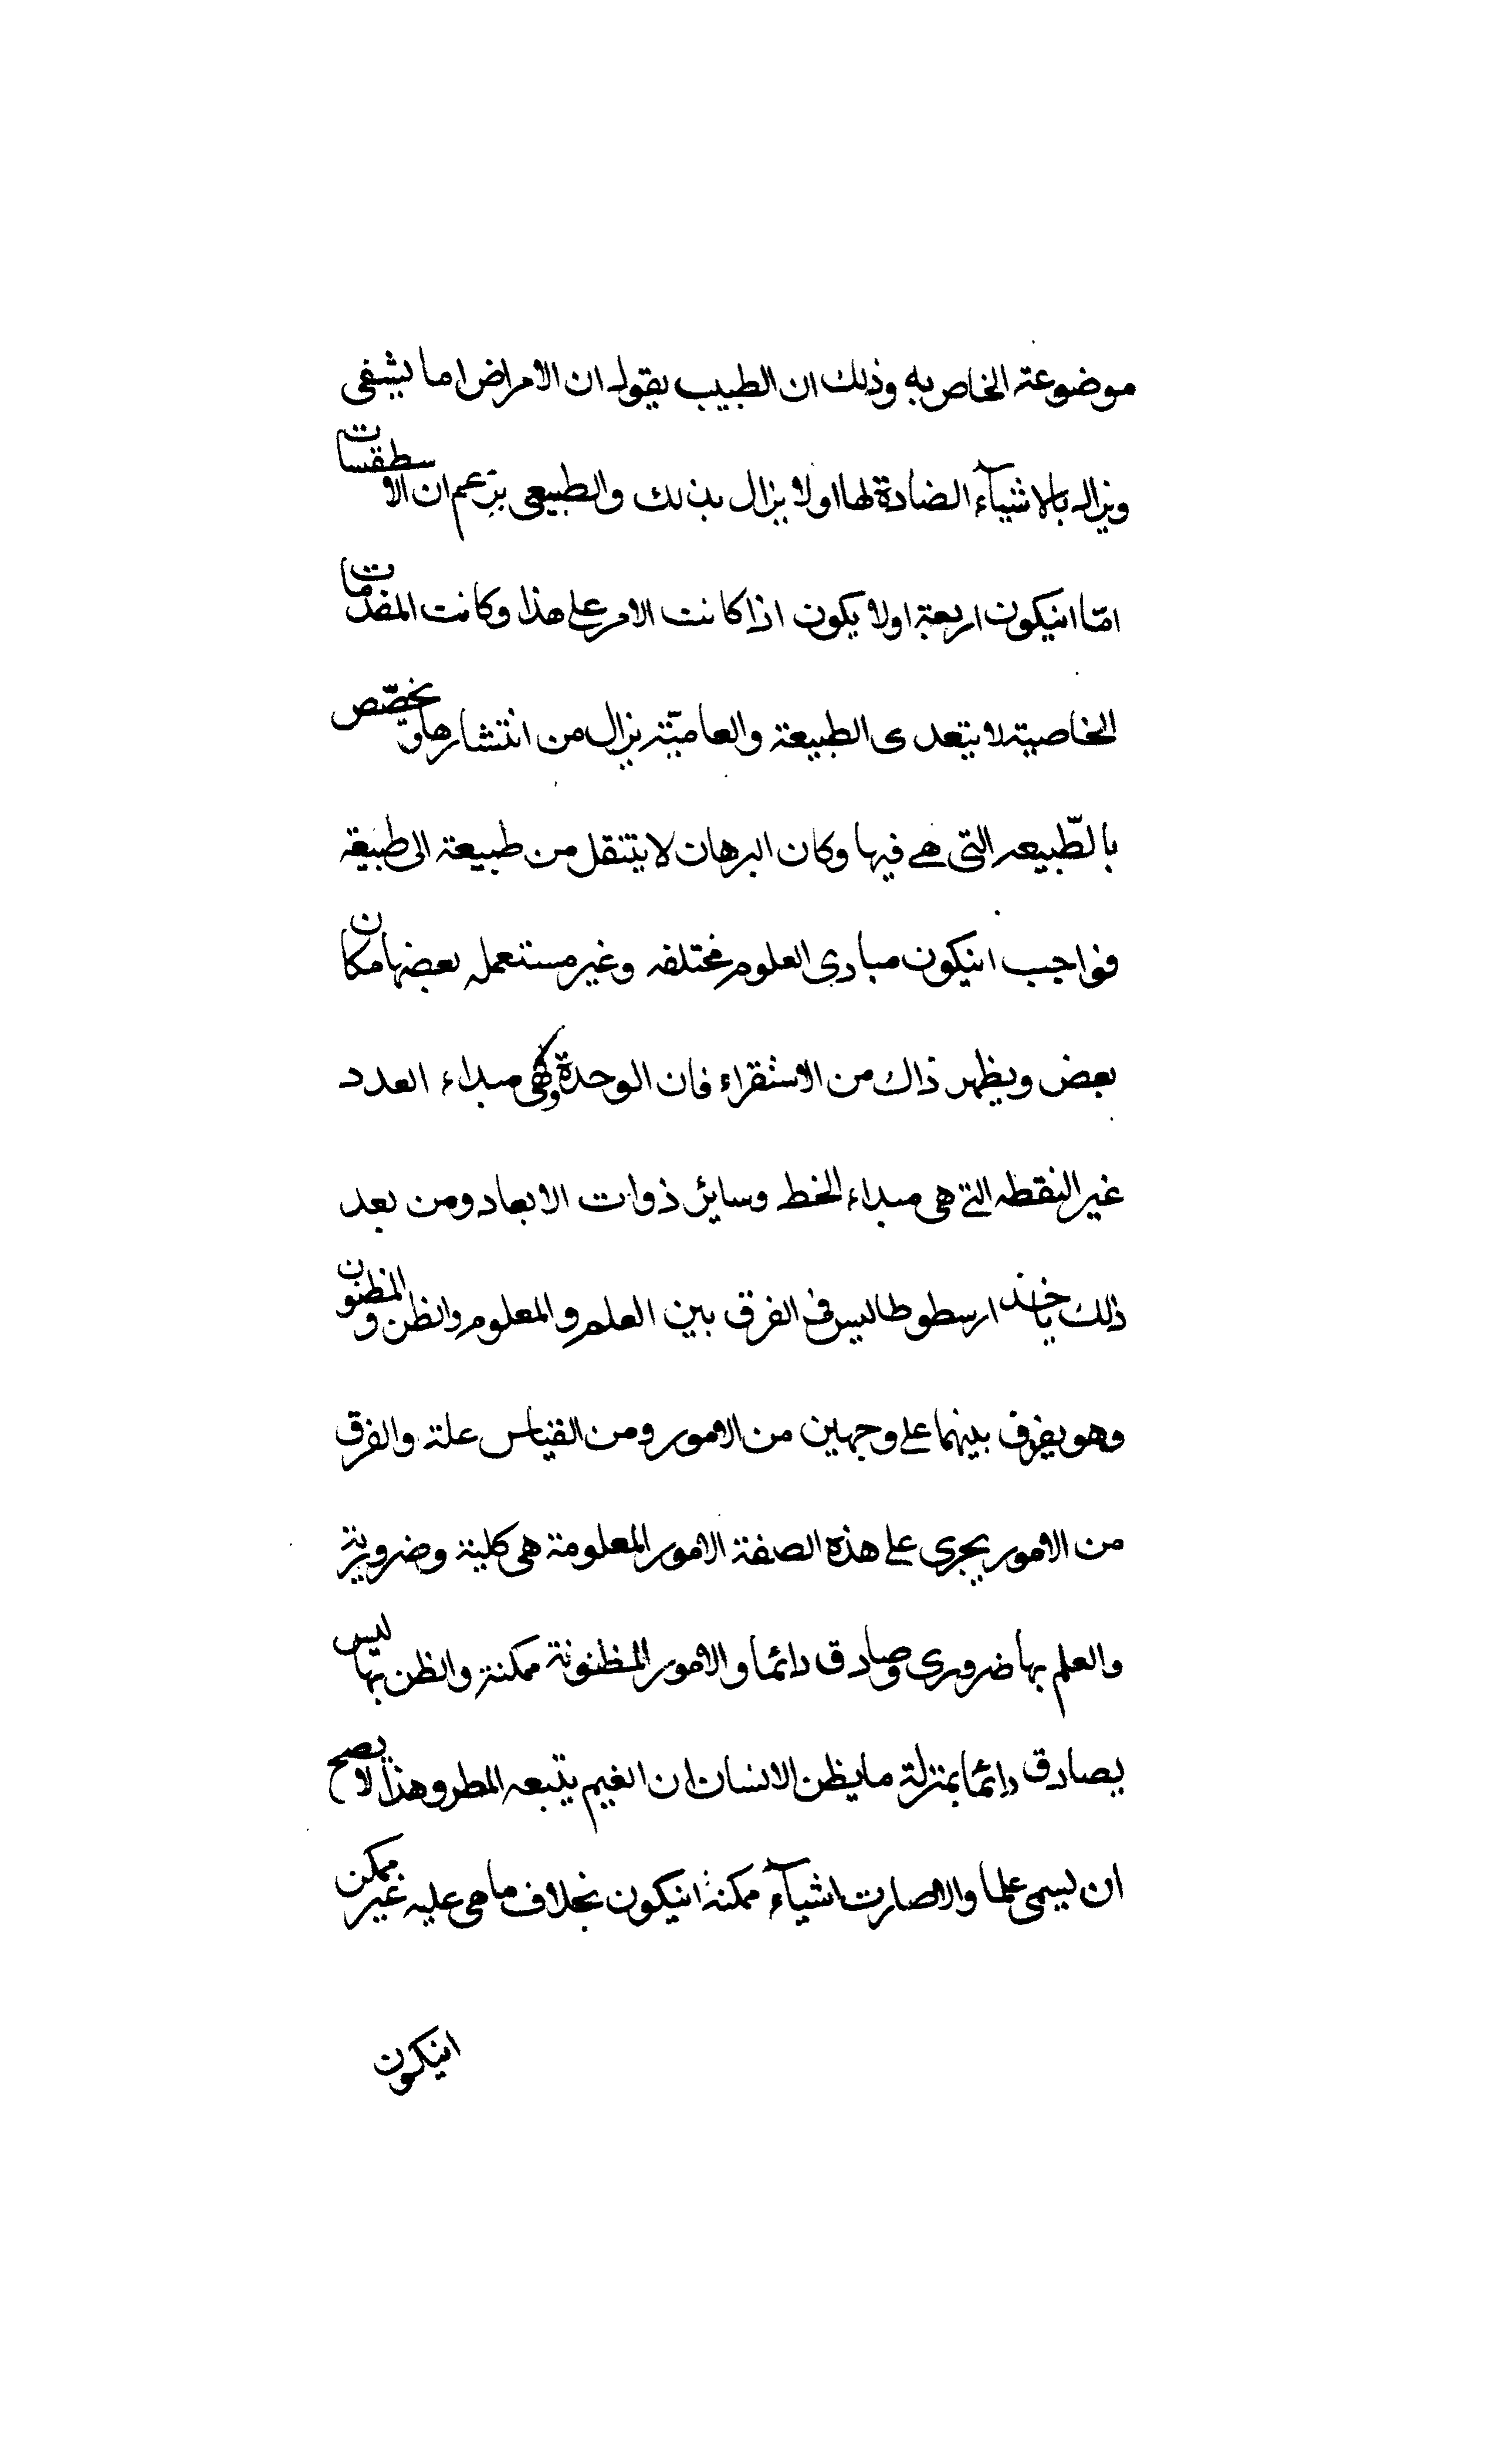 موضوعة الخاص به وذلك ان الطبيب يقول ان الامراض اما يشفى
ويزال بالاشيآء الضادة لها اولا يزال بذلك والطبيعى يزعم ان الاسطقسات
امّا انيكون اربعة اولا يكون اذا كانت الامر على هذا وكانت المقدمات
الخاصية لا يتعدى الطبيعة والعاميّة يزال من انتشارها وتخصّص
بالطّبيعه التى هى فيها وكان البرهان لا يتنقل من طبيعة الى طبيعة
فواجب انيكون مبادى العلوم مختلفه وغير مستعمله بعضها مكان
بعض ويظهر ذاك من الاستقراء فان الوحدة وهى مبداء العدد
غير النقطه التى هى مبداء الخط وسايئر ذوات الابعاد ومن بعد
ذلك ياخذ ارسطوطاليس فى الفرق بين العلم والمعلوم والظن والمظنون
وهو يفرق بينهما على وجهين من الامور ومن القياس علة والفرق
من الامور يجرى على هذه الصفة الامور المعلومة هى كلية وضرورية
والعلم بها ضرورى وصادق دائما والامور المظنونة ممكنة والظن بها ليس
بصادق دائما بمنزلة ما يظن الانسان ان الغيم يتبعه المطر وهذا لا يصح
ان يسمى علما والا لصارت اشيآء ممكنة انيكون بخلاف ما هى عليه غير ممكن
انيكون